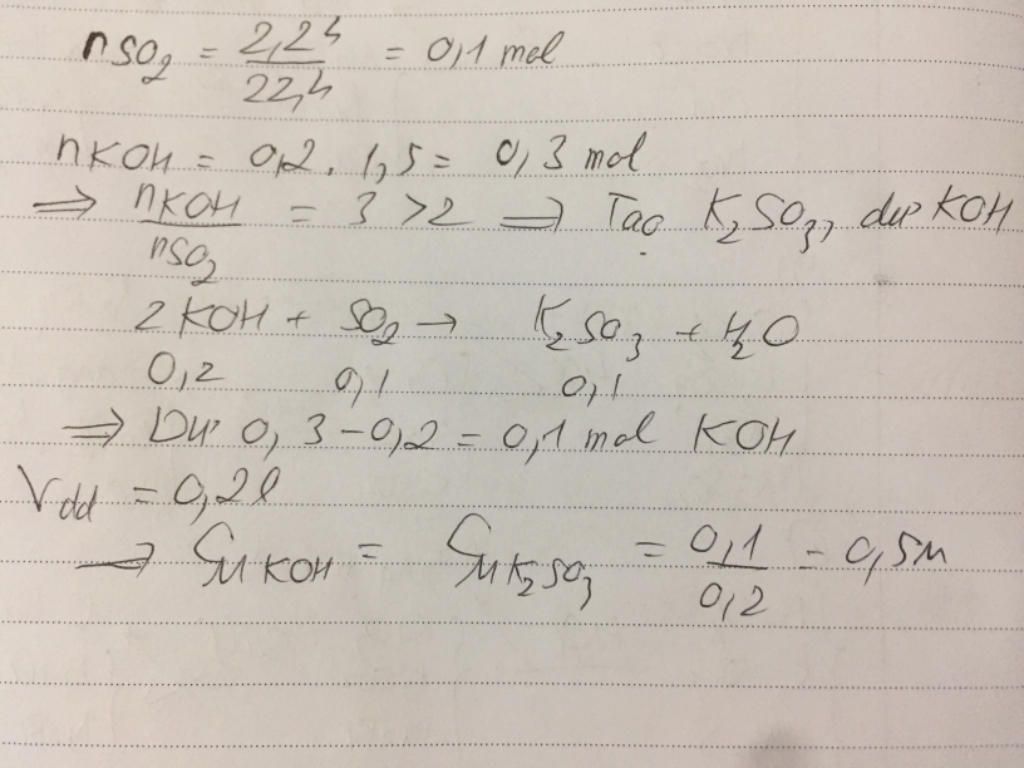 nSO₂ = 2,24/22,4 = 0,1 mol
nKOH = 0,2 . 1,5 = 0,3 mol
⇒ nKOH/nSO₂ = 3 > 2 ⇒ Tạo K₂SO₃, dư KOH
2KOH + SO₂ → K₂SO₃ + H₂O
0,2 0,1 0,1
⇒ Dư 0,3 - 0,2 = 0,1 mol KOH
Vdd = 0,2l
→ CM KOH = CM K₂SO₃ = 0,1/0,2 = 0,5M